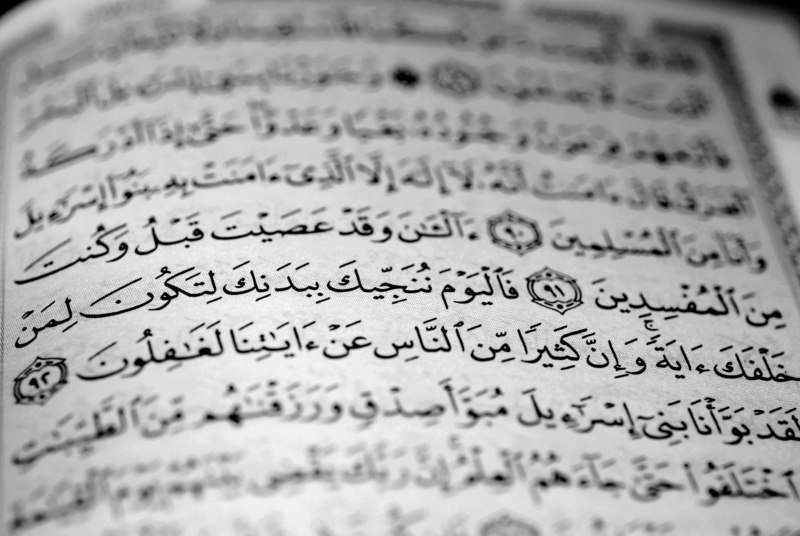 وَجَٰوَزْنَا بِبَنِىٓ إِسْرَٰٓءِيلَ ٱلْبَحْرَ
فَأَتْبَعَهُمْ فِرْعَوْنُ وَجُنُودُهُۥ بَغْيًا وَعَدْوًا حَتَّىٰٓ إِذَآ أَدْرَكَهُ
ٱلْغَرَقُ قَالَ ءَامَنتُ أَنَّهُۥ لَآ إِلَٰهَ إِلَّا ٱلَّذِىٓ ءَامَنَتْ بِهِۦ بَنُوٓا۟ إِسْرَٰٓءِيلَ
وَأَنَا۠ مِنَ ٱلْمُسْلِمِينَ ٩٠ ءَآلْـَٰٔنَ وَقَدْ عَصَيْتَ قَبْلُ وَكُنتَ
مِنَ ٱلْمُفْسِدِينَ ٩١ فَٱلْيَوْمَ نُنَجِّيكَ بِبَدَنِكَ لِتَكُونَ لِمَنْ
خَلْفَكَ ءَايَةً ۚ وَإِنَّ كَثِيرًا مِّنَ ٱلنَّاسِ عَنْ ءَايَٰتِنَا لَغَٰفِلُونَ ٩٢
لَقَدْ بَوَّأْنَا بَنِىٓ إِسْرَٰٓءِيلَ مُبَوَّأَ صِدْقٍ وَرَزَقْنَٰهُم مِّنَ ٱلطَّيِّبَٰتِ
ٱخْتَلَفُوا۟ حَتَّىٰ جَآءَهُمُ ٱلْعِلْمُ ۚ إِنَّ رَبَّكَ يَقْضِى بَيْنَهُمْ يَوْمَ ٱلْقِيَٰمَةِ